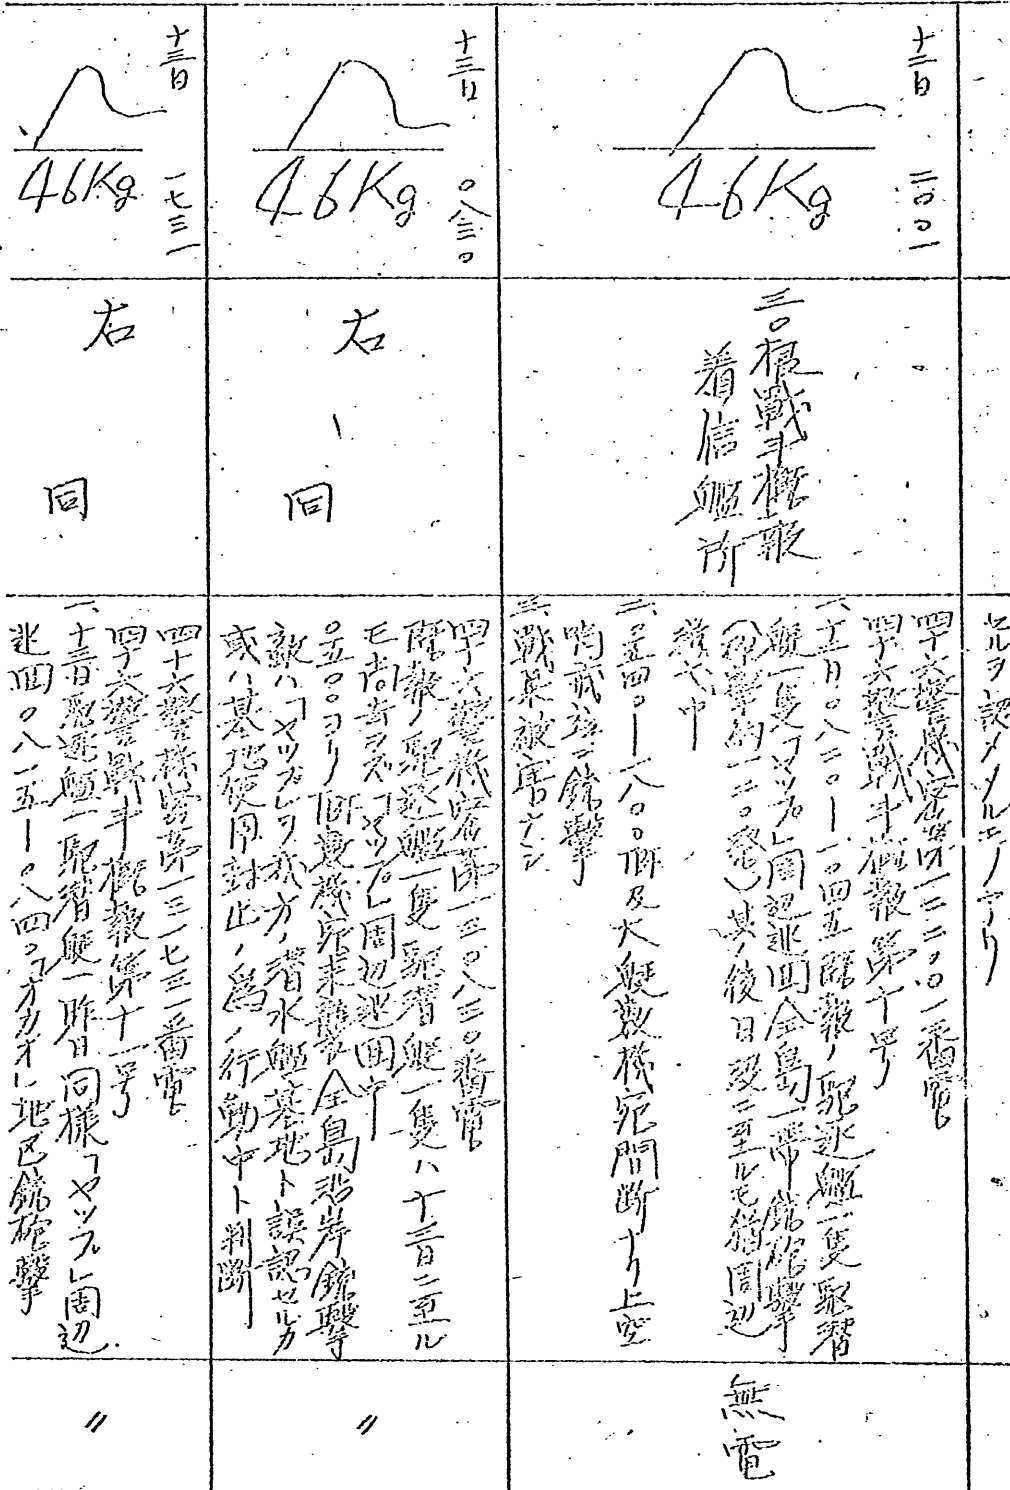 セルヲ認メタルニノアリ
十二日 二〇〇一
46Kg
三〇根戦斗概報
着信艦所
四十六警機密第一二二〇〇一番電
四十六警戦斗概報第十号
一、十二日〇八二〇―一〇四五既報ノ駆逐艦一隻駆潜
艇一隻「ヤップ」周辺巡回全島一帯銃砲撃
(砲撃約一二〇発)其ノ後日没ニ至ルモ猶周辺
中
二、〇五四〇―一八〇〇 及大艇数機宛間断ナク上空
ニ銃撃
三、戦果被害ナシ
無電
十三日 〇八三〇
46Kg
右 同
四十六警機密第一三〇八三〇番電
既報ノ駆逐艦一隻駆潜艇一隻ハ十三日ニ至ル
モ尚去ラズ「ヤップ」周辺巡回中
〇五〇〇ヨリ 数機宛来襲全島沿岸銃撃
敵ハ「ヤップ」ヲ我方ノ潜水艦基地ト誤認セルカ
或ハ基地使用封止ノ為ノ行動中ト判断
〃
十三日 一七三一
46Kg
右 同
四十六警機密第一三一七三一番電
四十六警戦斗概報第十一号
一、十三日駆逐艦一駆潜艇一昨日同様「ヤップ」周辺
巡回〇八一五―〇八四〇 地区銃砲撃
〃